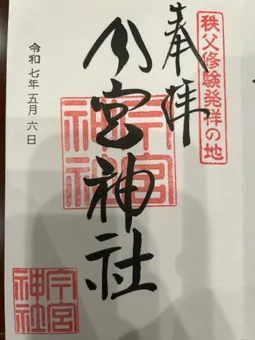 秩父修験発祥の地
奉拝
今宮神社
令和七年五月六日
今宮
神社
今宮
神社